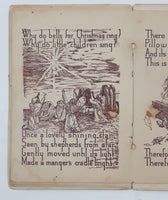 Why do bells for Christmas ring?
Why do little children sing?
Once a lovely shining star,
Seen by shepherds from afar,
Gently moved until its light
Made a manger's cradle bright.
There
Pillow
And its
This is
Therefor
Therefor